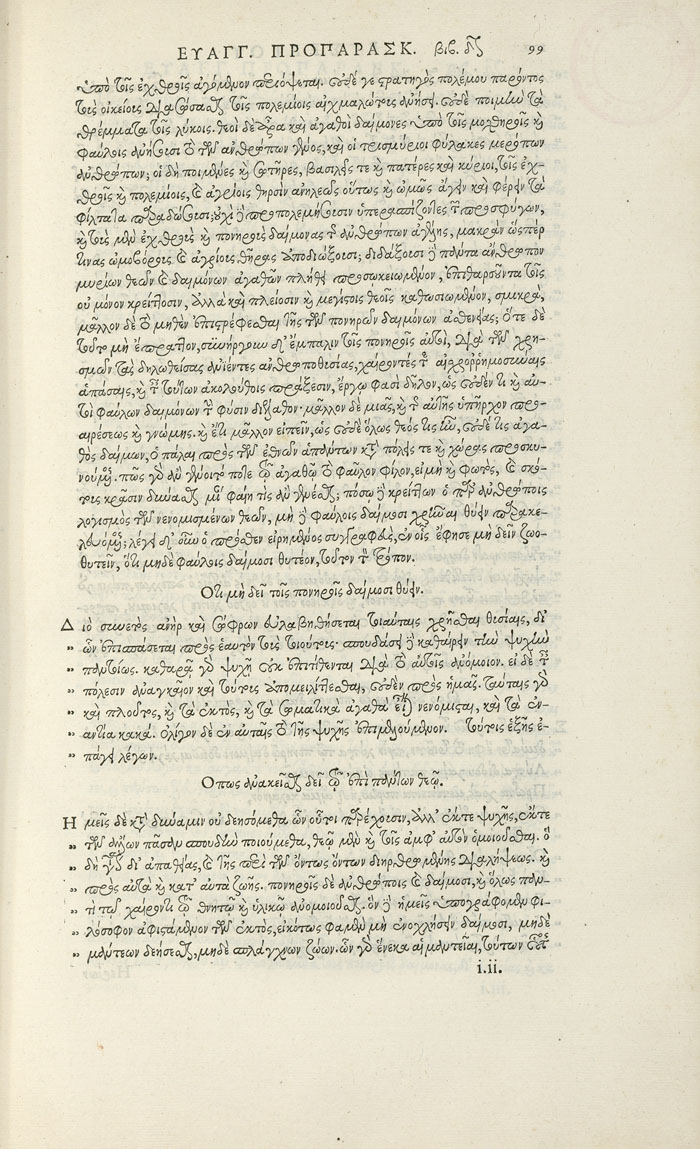 ΕΥΑΓΓ. ΠΡΟΠΑΡΑΣΚ. βιβ. δ 99
ὑπὸ τοῖς ἐχθροῖς ἀγόμενον περιόψεται. οὐδέ γε στρατηγὸς πολέμου παρόντος
τοὺς οἰκείους τοῖς πολεμίοις αἰχμαλώτους ἀνήσει. οὐδὲ ποιμὴν τὰ
θρέμματα τοῖς λύκοις. θεοὶ δὲ ἄρα καὶ ἀγαθοὶ δαίμονες ὑπὸ τοῖς μοχθηροῖς καὶ
φαύλοις ἀνήσουσι τὸ τῶν ἀνθρώπων γένος, καὶ οἱ τρισμύριοι φύλακες μερόπων
ἀνθρώπων; οἱ δὴ ποιμένες καὶ σωτῆρες, βασιλεῖς τε καὶ πατέρες καὶ κύριοι, τοῖς ἐχ-
θροῖς καὶ πολεμίοις, καὶ ἀγρίοις θηρσὶν ἀνηλεῶς οὕτως καὶ ὠμῶς ἄγειν καὶ φέρειν τὰ
φίλτατα παραδώσουσι; οὐχὶ δὲ προπολεμήσουσιν ὑπερασπίζοντες τῶν προσφύγων,
καὶ τοὺς μὲν ἐχθροὺς καὶ πονηροὺς δαίμονας τῆς ἀνθρώπων ἀγέλης, μακρὰν ὥσπέρ
τινας ὠμοβόρους καὶ ἀγρίους θῆρας ἀποδιώξουσι; διδάξουσι δὲ πάντα ἄνθρωπον
μυρίων θεῶν καὶ δαιμόνων ἀγαθῶν πλήθει προσωκειωμένον, ἐπιθαρσοῦντα τοῖς
οὐ μόνον κρείττοσιν, ἀλλὰ καὶ πλείοσιν καὶ μεγίστοις θεοῖς καθωσιωμένον, σμικρὰ,
μᾶλλον δὲ τὸ μηθὲν ἐπιστρέφεσθαι τῆς τῶν πονηρῶν δαιμόνων ἀσθενείας; ὅτε δὲ
τοῦτο μὴ ἔπραττον, συνήργουν δ' ἔμπαλιν τοῖς πονηροῖς αὐτοὶ, διὰ τῶν χρη-
σμῶν τὰς δηλωθείσας ἀνιέντες ἀνθρωποθυσίας, χαίροντές τε αἰσχρορρημοσύναις
ἁπάσαις, καὶ ταῖς τούτων ἀκολούθοις πράξεσιν, ἔργῳ φασὶ δῆλον, ὡς οὐδέν τι καὶ αὐ-
τοὶ φαύλων δαιμόνων τὴν φύσιν διήλλαττον· μᾶλλον δὲ μιᾶς, καὶ τῆς αὐτῆς ὑπῆρχον προ-
αιρέσεως καὶ γνώμης. καὶ ἔτι μᾶλλον εἰπεῖν, ὡς οὐδὲ ὅλως θεός τις ἦν, οὐδέ τις ἀγα-
θὸς δαίμων, ὁ πάλαι πρὸς τῶν ἐθνῶν ἁπάντων κατὰ πόλεις τε καὶ χώρας προσκυ-
νούμενος. πῶς γὰρ ἂν γένοιτό ποτε τῷ ἀγαθῷ τὸ φαῦλον φίλον, εἰ μὴ καὶ φωτὸς, καὶ σκό-
τους κρᾶσιν δύνασθαι μίαν φαίη τίς ἂν γενέσθαι; πόσῳ δὲ κρείττων ὁ παρ' ἀνθρώποις
λογισμὸς τῶν νενομισμένων θεῶν, μὴ δὲ φαύλοις δαίμοσι χρῆναι θύειν παρακε-
λευόμενος; λέγει δ' οὖν ὁ πρόσθεν εἰρημένος συγγραφεὺς, ἐν οἷς ἔφησε μὴ δεῖν ζωο-
θυτεῖν, ὅτι μηδὲ φαύλοις δαίμοσι θυτέον, τοῦτον τὸν τρόπον.
Ὅτι μὴ δεῖ τοῖς πονηροῖς δαίμοσι θύειν.
Διὸ συνετὸς ἀνὴρ καὶ σώφρων εὐλαβηθήσεται τοιαύταις χρῆσθαι θυσίαις, δι'
" ὧν ἐπισπάσεται πρὸς ἑαυτὸν τοὺς τοιούτους· σπουδάσει δὲ καθαίρειν τὴν ψυχὴν
" παντοίως. καθαρᾷ γὰρ ψυχῇ οὐκ ἐπιτίθενται διὰ τὸ αὐτοῖς ἀνόμοιον. εἰ δὲ ταῖς
" πόλεσιν ἀναγκαῖον καὶ τούτους ἀπομειλίττεσθαι, οὐδὲν πρὸς ἡμᾶς. ταύταις γὰρ
" καὶ πλοῦτος, καὶ τὰ ἐκτὸς, καὶ τὰ σωματικὰ ἀγαθὰ εἶναι νενόμισται, καὶ τὰ ἐν-
" αντία κακά. ὀλίγον δὲ ἐν αὐταῖς τὸ τῆς ψυχῆς ἐπιμελούμενον. τούτοις ἑξῆς ἐ-
" πάγει λέγων.
Ὅπως ἀνακεῖσθαι δεῖ τῷ ἐπὶ πάντων θεῷ.
Ἡμεῖς δὲ κατὰ δύναμιν οὐ δεησόμεθα ὧν οὗτοι παρέχουσιν, ἀλλ' ἔκτε ψυχῆς, ἔκτε
" τῶν ἄλλων πᾶσαν σπουδὴν ποιούμεθα, θεῷ μὲν καὶ τοῖς ἀμφ' αὐτὸν ὁμοιοῦσθαι. ὃ
" δὴ γίνεται δι' ἀπαθείας, καὶ τῆς περὶ τῶν ὄντως ὄντων διηρθρωμένης διαλήψεως. καὶ
" πρὸς αὐτὰ καὶ κατ' αὐτὰ ζωῆς. πονηροῖς δὲ ἀνθρώποις καὶ δαίμοσι, καὶ ὅλως παν-
" τὶ τῷ χαίροντι τῷ θνητῷ καὶ ὑλικῷ ἀνομοιοῦσθαι. ὃν δὲ ἡμεῖς ὑπογράφομεν φι-
" λόσοφον ἀφιστάμενον τῶν ἐκτὸς, εἰκότως φαμὲν μὴ ἐνοχλήσειν δαίμοσι, μηδὲ
" μάντεων δεήσεσθαι, μηδὲ σπλάγχνων ζώων. ὧν γὰρ ἕνεκα αἱ μαντεῖαι, τούτων οὗτος
i.ii.